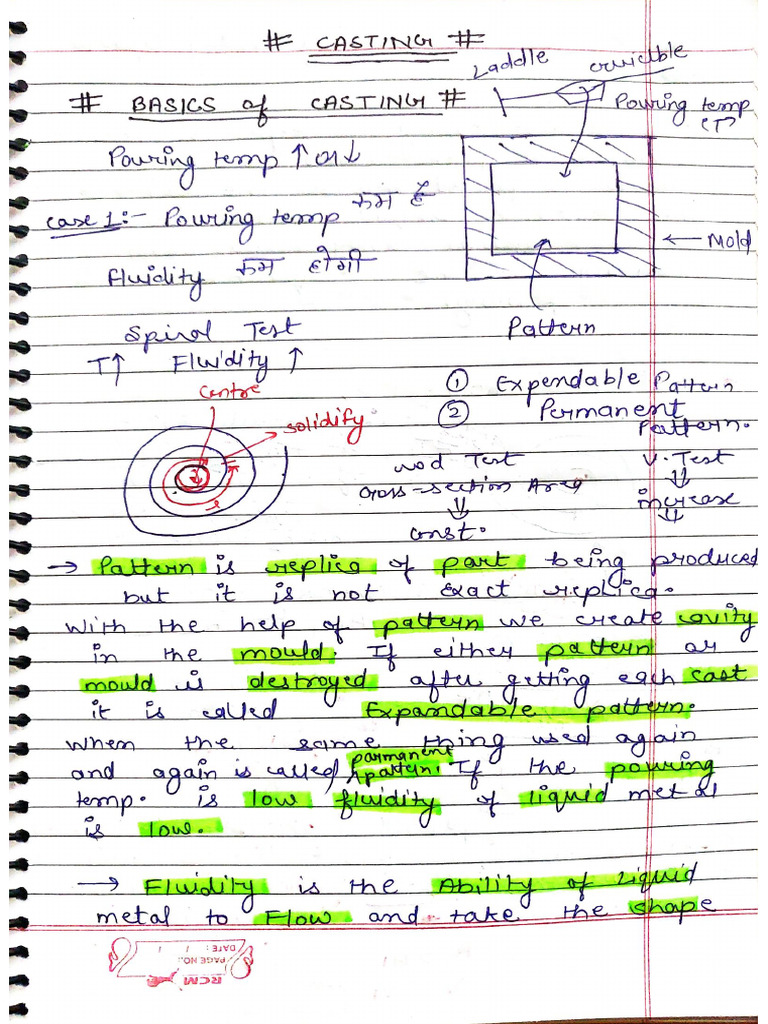 # CASTING #
Laddle
crucible
# BASICS of CASTING #
Pouring temp
(T)
Pouring temp ↑ or ↓
case 1:- Pouring temp कम है
← Mold
fluidity कम होगी
Spiral Test
Pattern
T↑ Fluidity ↑
① Expendable Pattern
② Permanent
Pattern.
centre
solidify
rod Test
V. Test
cross-section Area
increase
⇓
⇓
const.
→ Pattern is replica of part being produced
but it is not exact replica.
With the help of pattern we create cavity
in the mould. If either pattern or
mould is destroyed after getting each cast
it is called Expandable pattern.
when the same thing used again
and again is called, parmanent pattern. If the pouring
temp. is low fluidity of liquid metal
is low.
→ Fluidity is the Ability of Liquid
metal to Flow and take the shape
RCM
PAGE NO.:
DATE: / /